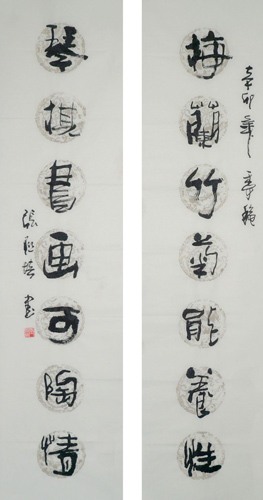 辛卯年
梅蘭竹菊能養性
琴棋書画可陶情
張
書